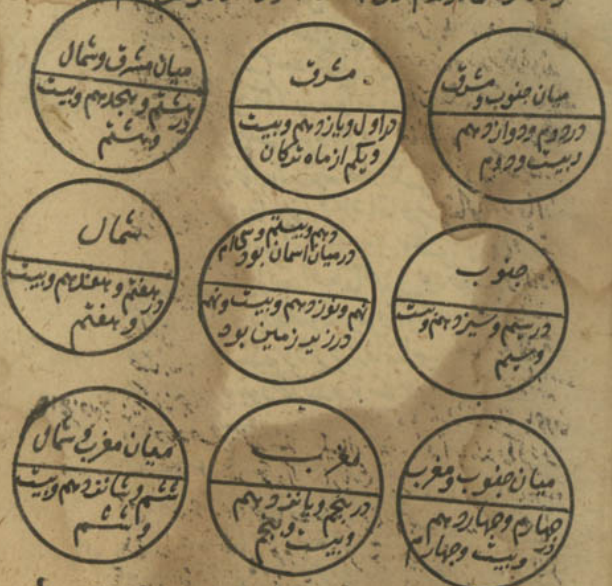 میان جنوب و مشرق
در دوم و دوازدهم
و بیست و دوم
مشرق
در اول و یازدهم و بیست
و یکم از ماه ترکان
میان مشرق و شمال
در هشتم و هجدهم و بیست
و هشتم
جنوب
در سیم و سیزدهم و بیست
و سیم
دهم و بیستم و سی ام
در میان اسمان بود
نهم و نوزدهم و بیست و نهم
در زیر زمین بود
شمال
در هفتم و هفدهم و بیست
و هفتم
میان جنوب و مغرب
در چهارم و چهاردهم
و بیست و چهارم
مغرب
در پنجم و پانزدهم
و بیست و پنجم
میان مغرب و شمال
ششم و شانزدهم و بیست
و ششم